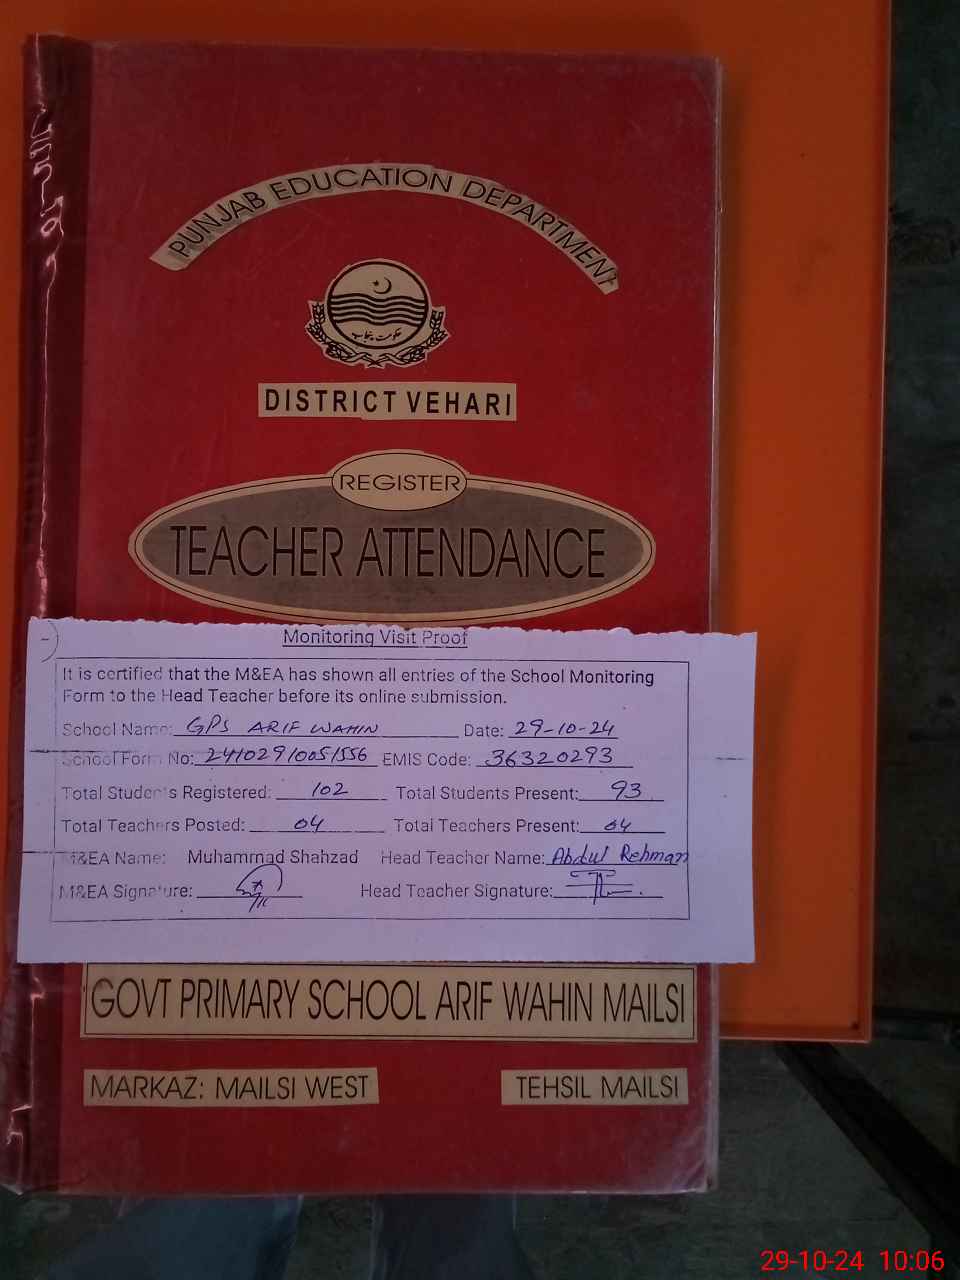 PUNJAB EDUCATION DEPARTMENT
حکومت پنجاب
DISTRICT VEHARI
REGISTER
TEACHER ATTENDANCE
Monitoring Visit Proof
It is certified that the M&EA has shown all entries of the School Monitoring
Form to the Head Teacher before its online submission.
School Name: GPS ARIF WAHIN Date: 29-10-24
School Form No: 24102910051556 EMIS Code: 36320293
Total Students Registered: 102 Total Students Present: 93
Total Teachers Posted: 04 Total Teachers Present: 04
M&EA Name: Muhammad Shahzad Head Teacher Name: Abdul Rehman
M&EA Signature: Head Teacher Signature:
GOVT PRIMARY SCHOOL ARIF WAHIN MAILSI
MARKAZ: MAILSI WEST TEHSIL MAILSI
29-10-24 10:06